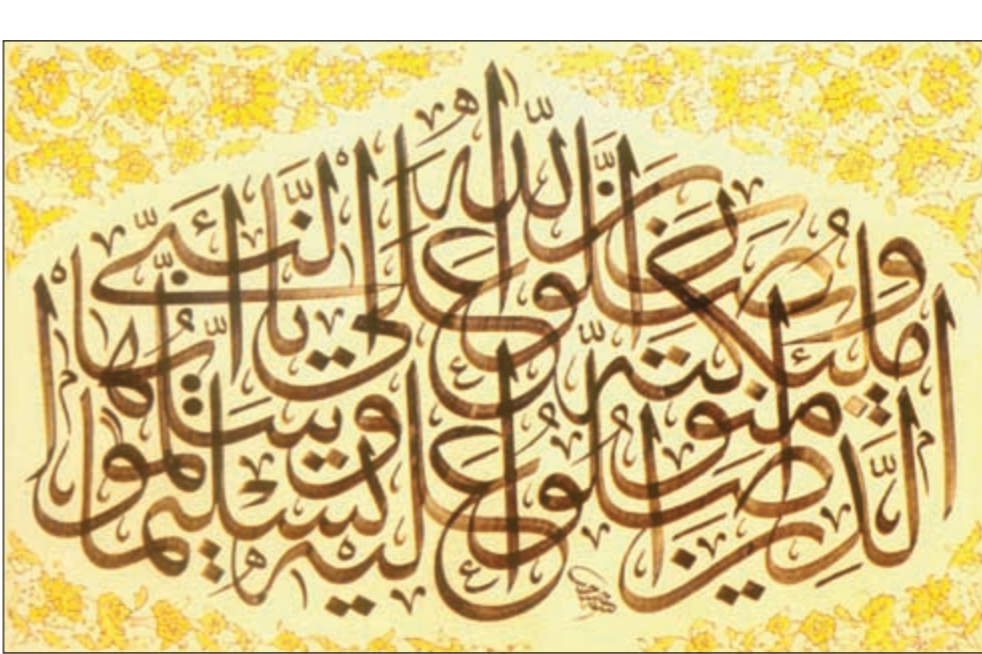 إِنَّ اللَّهَ وَمَلَٰئِكَتَهُ يُصَلُّونَ عَلَى النَّبِيِّ يَا أَيُّهَا
الَّذِينَ اٰمَنُوا صَلُّوا عَلَيْهِ وَسَلِّمُوا تَسْلِيمًا